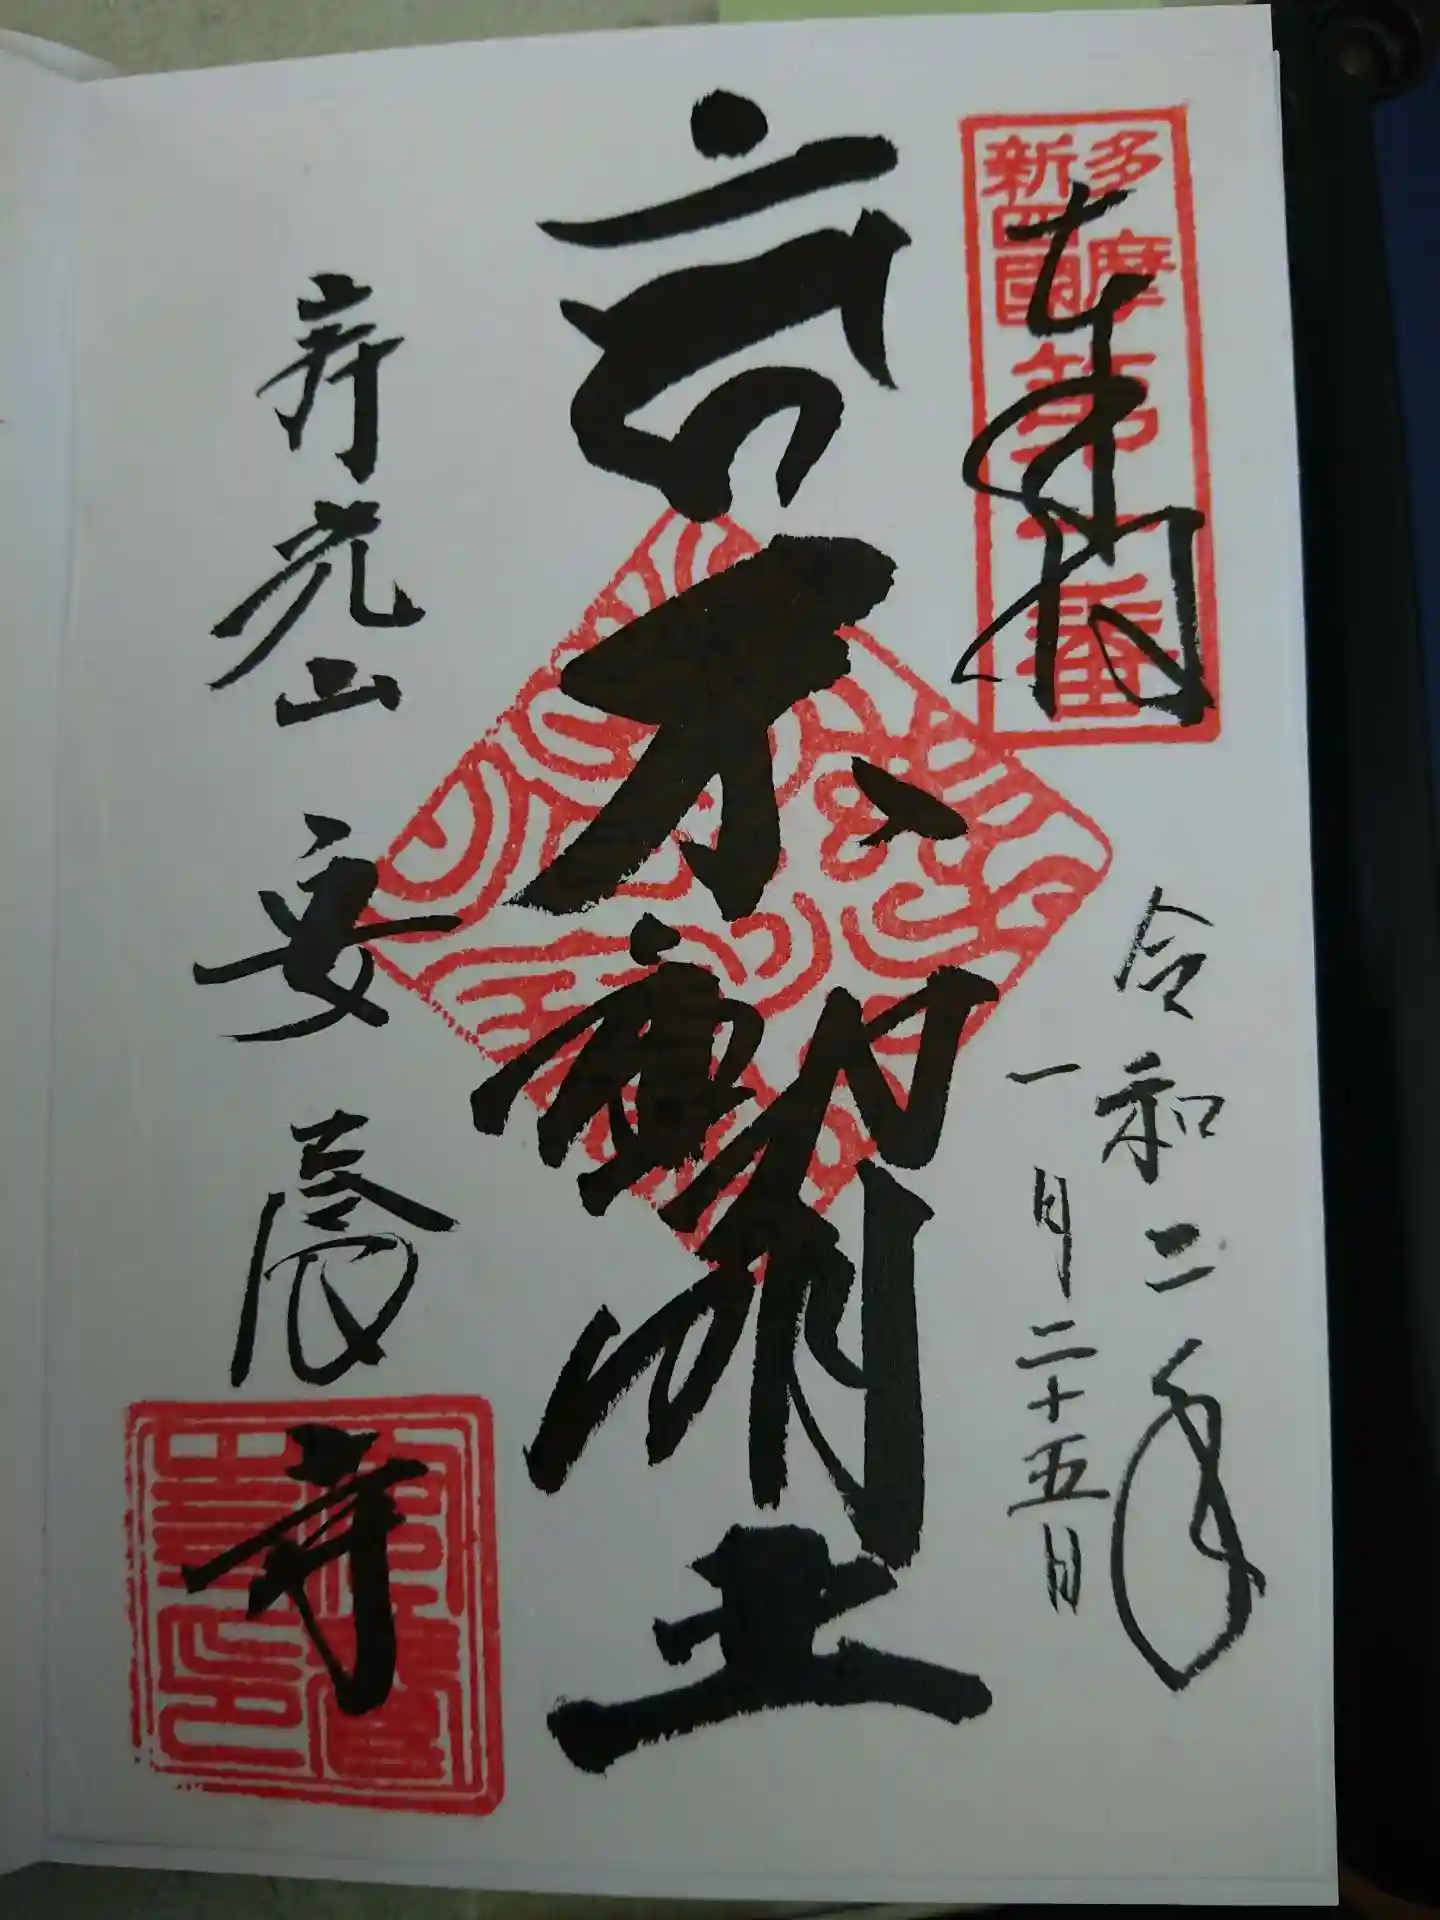 奉拝
多摩
新四國
第一番
令和二年
一月二十五日
不動明王
寿光山
安養寺